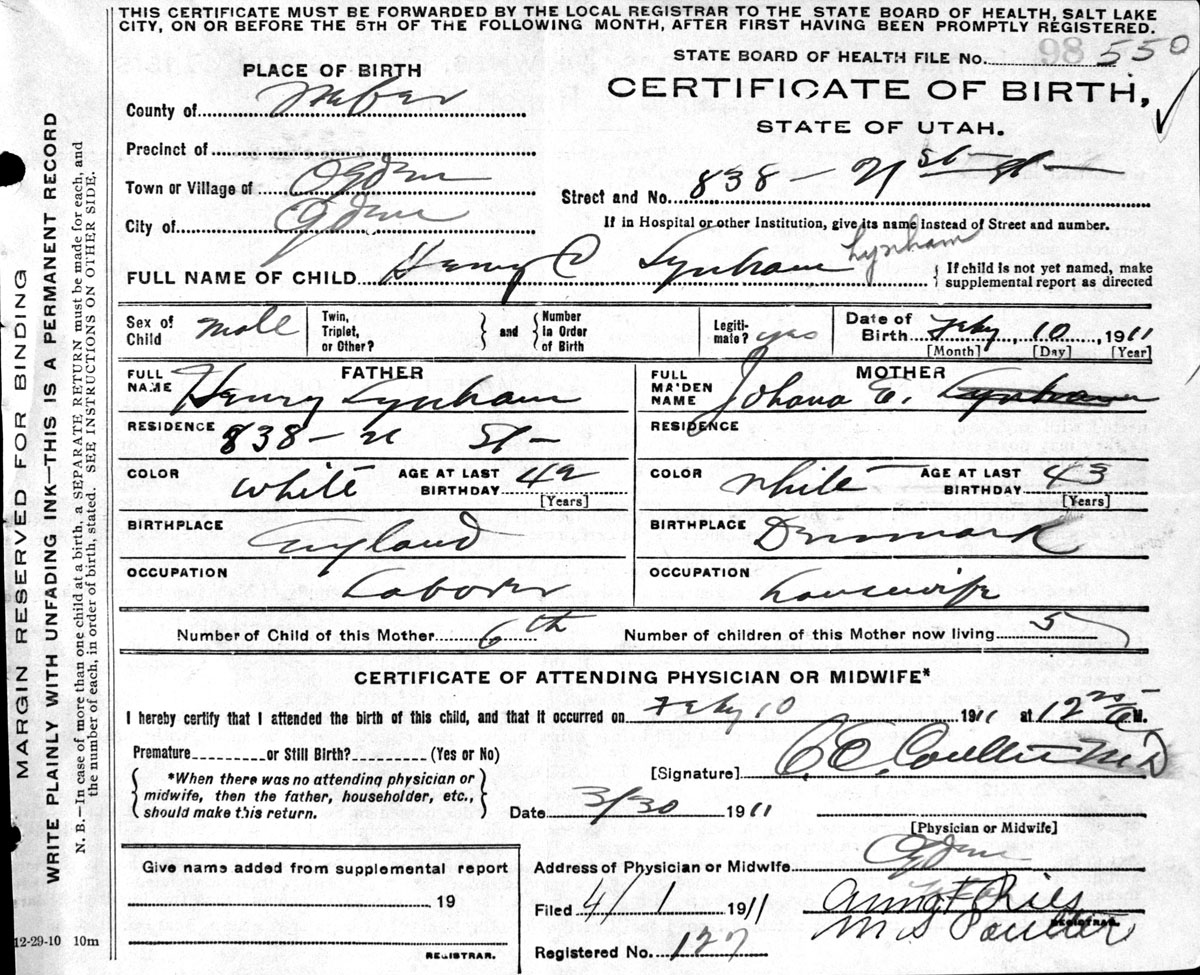 THIS CERTIFICATE MUST BE FORWARDED BY THE LOCAL REGISTRAR TO THE STATE BOARD OF HEALTH, SALT LAKE
CITY, ON OR BEFORE THE 5TH OF THE FOLLOWING MONTH, AFTER FIRST HAVING BEEN PROMPTLY REGISTERED.
STATE BOARD OF HEALTH FILE No. 98 550
PLACE OF BIRTH
CERTIFICATE OF BIRTH,
STATE OF UTAH.
County of Weber
Precinct of
Town or Village of Ogden
Street and No. 838 - 21st St
City of Ogden
If in Hospital or other Institution, give its name instead of Street and number.
FULL NAME OF CHILD Henry C Lynham Lynham
If child is not yet named, make
supplemental report as directed
Sex of
Child Male
Twin,
Triplet,
or Other?
and
Number
in Order
of Birth
Legiti-
mate? yes
Date of
Birth Feby 10, 1911
[Month] [Day] [Year]
FATHER
FULL
NAME Henry Lynham
MOTHER
FULL
MAIDEN
NAME Johana E. Lynham
RESIDENCE 838 - 21 St -
RESIDENCE
COLOR White
AGE AT LAST
BIRTHDAY 42
[Years]
COLOR White
AGE AT LAST
BIRTHDAY 43
[Years]
BIRTHPLACE England
BIRTHPLACE Denmark
OCCUPATION Laborer
OCCUPATION housewife
Number of Child of this Mother 6th
Number of children of this Mother now living 5
CERTIFICATE OF ATTENDING PHYSICIAN OR MIDWIFE*
I hereby certify that I attended the birth of this child, and that it occurred on Feby 10 1911 at 12 M.
Premature or Still Birth? (Yes or No)
*When there was no attending physician or
midwife, then the father, householder, etc.,
should make this return.
[Signature] C.E. Coulter M D
Date 3/30 1911
[Physician or Midwife]
Give name added from supplemental report
19
REGISTRAR.
Address of Physician or Midwife Ogden
Filed 4/1 1911
REGISTRAR.
Registered No. 127
12-29-10 10m
MARGIN RESERVED FOR BINDING
WRITE PLAINLY WITH UNFADING INK—THIS IS A PERMANENT RECORD
N. B.—In case of more than one child at a birth, a SEPARATE RETURN must be made for each, and
the number of each, in order of birth, stated. SEE INSTRUCTIONS ON OTHER SIDE.